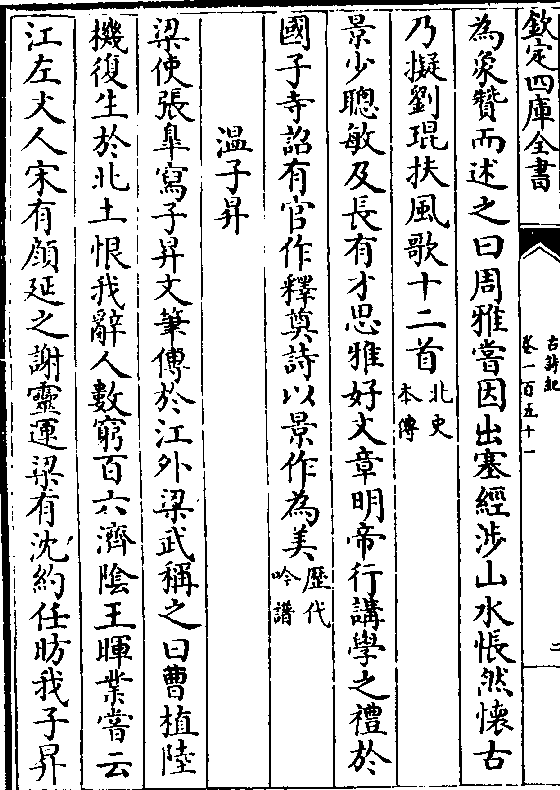 欽定四庫全書
古詩紀
卷一百五十一
二
為象贊而述之曰周雅嘗因出塞經涉山水悵然懷古
乃擬劉琨扶風歌十二首北史
本傳
景少聰敏及長有才思雅好文章明帝行講學之禮於
國子寺詔有官作釋奠詩以景作為美歷代
吟譜
温子昇
梁使張臯寫子昇文筆傳於江外梁武稱之曰曹植陸
機復生於北土恨我辭人數窮百六濟陰王暉業嘗云
江左文人宋有顔延之謝靈運梁有沈約任昉我子昇